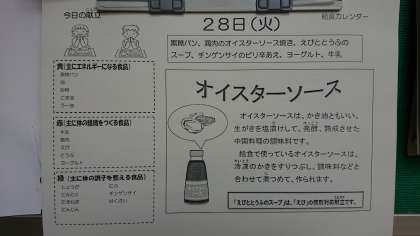 今日の献立
28日(火)
給食カレンダー
黒糖パン、鶏肉のオイスターソース焼き、えびととうふの
スープ、チンゲンサイのピリ辛あえ、ヨーグルト、牛乳
黄(主にエネルギーになる食品)
黒糖パン
油
砂糖
ごま油
赤(主に体の組織をつくる食品)
牛乳
鶏肉
えび
とうふ
ヨーグルト
緑(主に体の調子を整える食品)
しょうが にら
にんにく チンゲンサイ
たまねぎ はくさい
にんじん
オイスターソース
オイスターソースは、かき油ともいい、
生がきを塩漬けして、発酵、熟成させた
中国料理の調味料です。
給食で使っているオイスターソースは、
冷凍のかきをすりつぶし、調味料などと
合わせて煮つめて、作られます。
「えびととうふのスープ」は、「えび」の個別対応献立です。